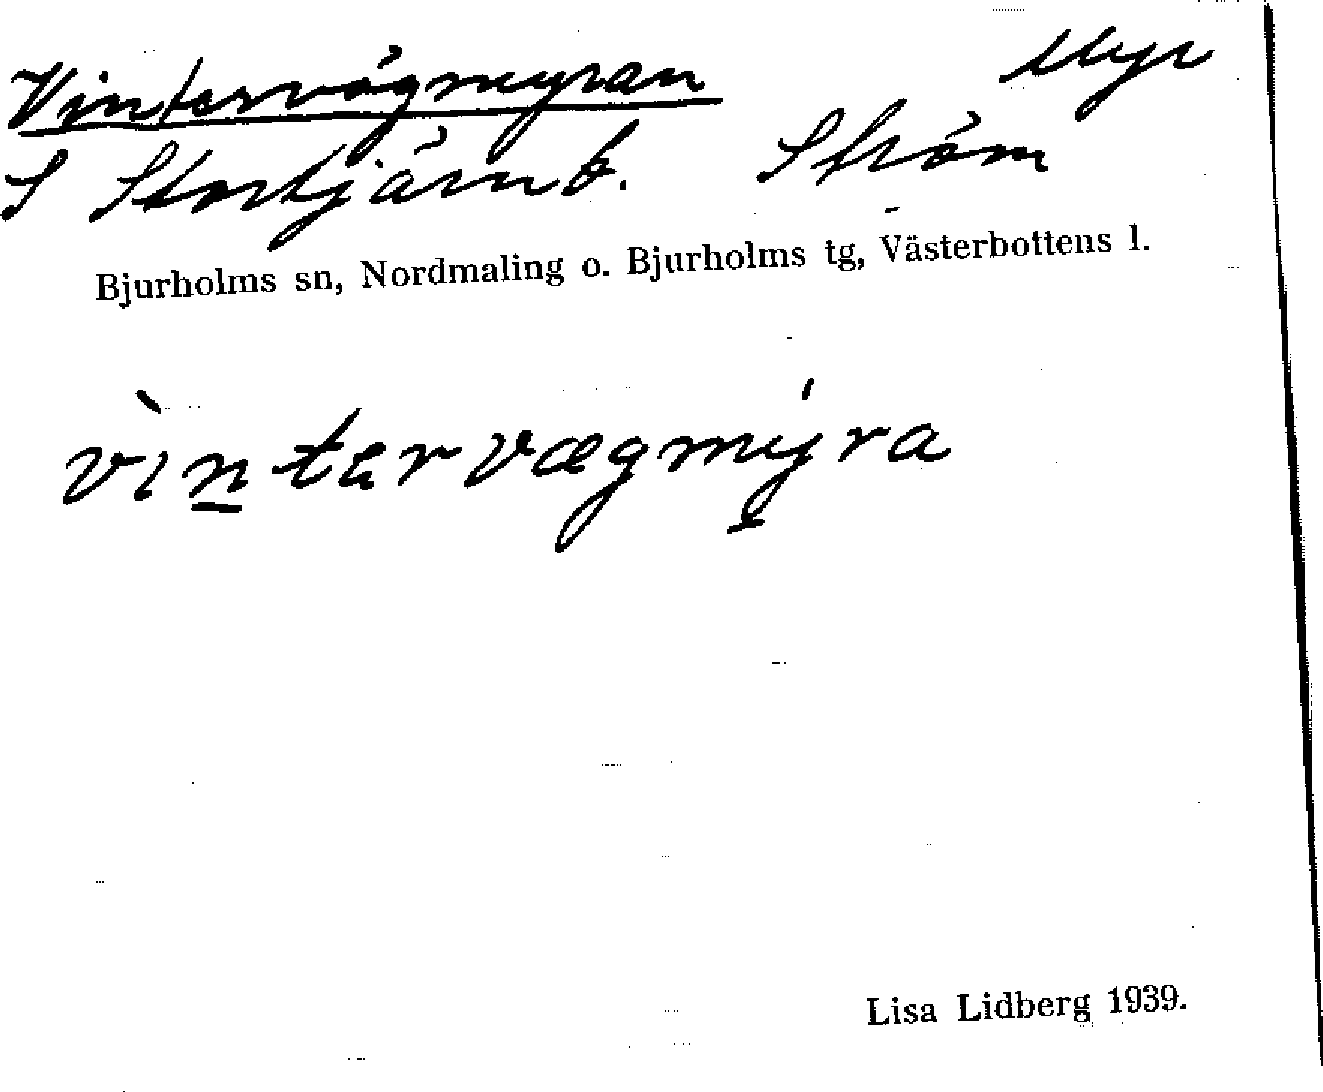 Vintervägmyran Myr
S Stortjärnb. Ström
Bjurholms sn, Nordmaling o. Bjurholms tg, Västerbottens l.
vìn̲tərvægmýra
Lisa Lidberg 1939.